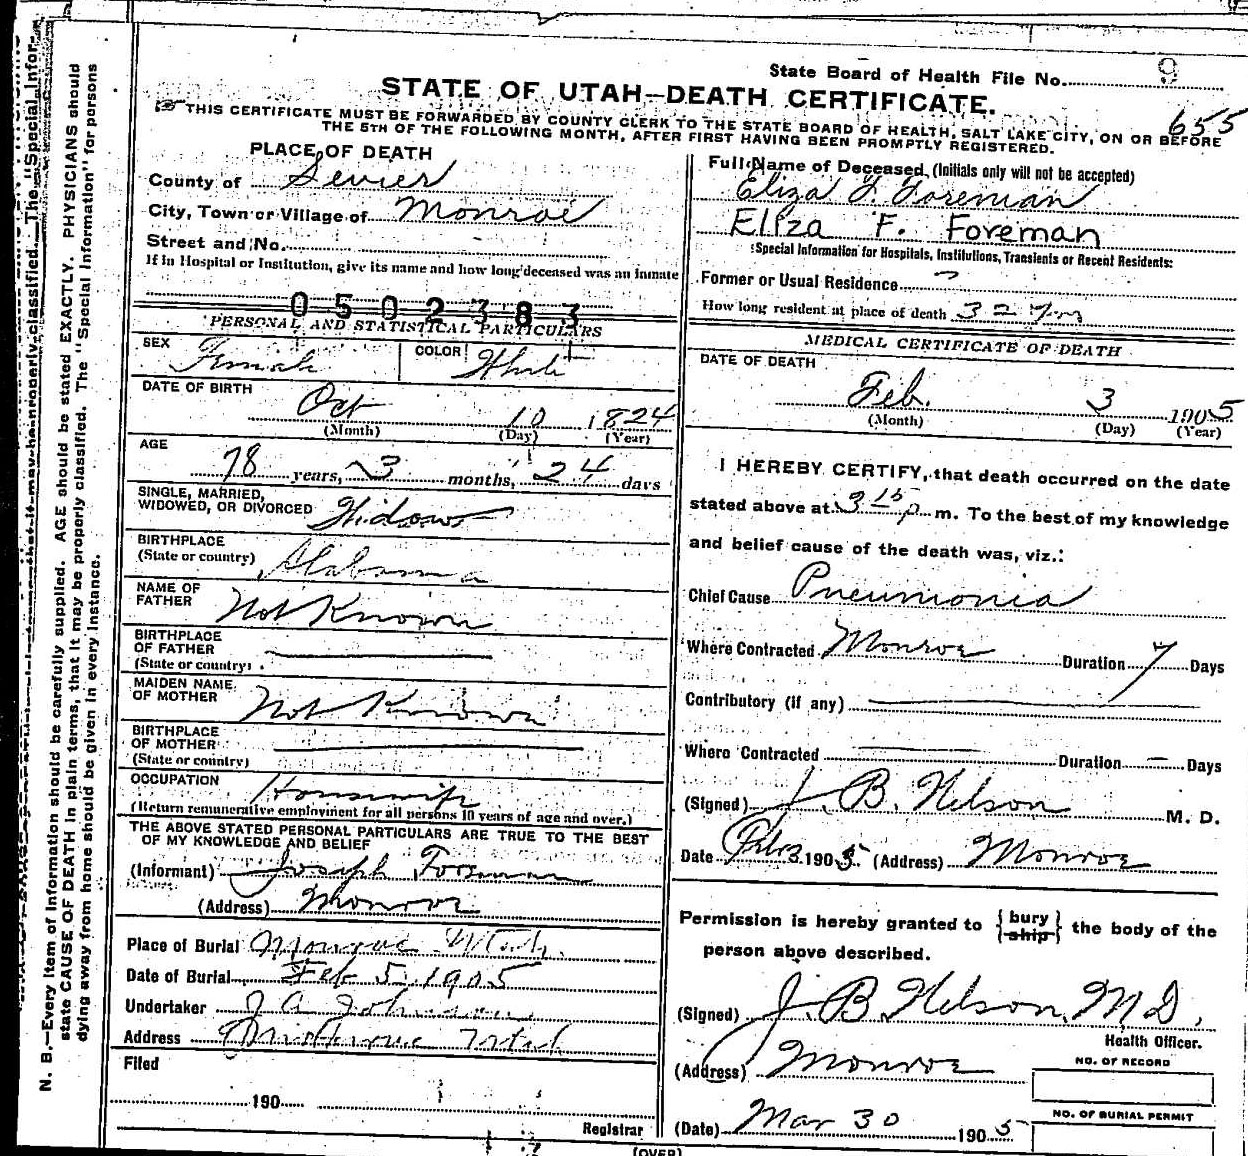 State Board of Health File No. 9
STATE OF UTAH—DEATH CERTIFICATE.
655
THIS CERTIFICATE MUST BE FORWARDED BY COUNTY CLERK TO THE STATE BOARD OF HEALTH, SALT LAKE CITY, ON OR BEFORE
THE 5TH OF THE FOLLOWING MONTH, AFTER FIRST HAVING BEEN PROMPTLY REGISTERED.
PLACE OF DEATH
County of Sevier
City, Town or Village of Monroe
Street and No.
If in Hospital or Institution, give its name and how long deceased was an inmate
0502383
PERSONAL AND STATISTICAL PARTICULARS
SEX Female COLOR White
DATE OF BIRTH
Oct 10 1824
(Month) (Day) (Year)
AGE
78 years, 3 months, 24 days
SINGLE, MARRIED,
WIDOWED, OR DIVORCED Widow
BIRTHPLACE
(State or country) Alabama
NAME OF
FATHER Not Known
BIRTHPLACE
OF FATHER
(State or country)
MAIDEN NAME
OF MOTHER Not Known
BIRTHPLACE
OF MOTHER
(State or country)
OCCUPATION Housewife
(Return remunerative employment for all persons 10 years of age and over.)
THE ABOVE STATED PERSONAL PARTICULARS ARE TRUE TO THE BEST
OF MY KNOWLEDGE AND BELIEF
(Informant) Joseph Foreman
(Address) Monroe
Place of Burial Monroe Utah.
Date of Burial Feb 5 1905
Undertaker J A Johnson
Address Utah
Filed
190
Registrar
Full Name of Deceased (Initials only will not be accepted)
Eliza F. Foreman
Eliza F. Foreman
Special Information for Hospitals, Institutions, Transients or Recent Residents:
Former or Usual Residence
How long resident at place of death 32 yrs
MEDICAL CERTIFICATE OF DEATH
DATE OF DEATH
Feb. 3 1905
(Month) (Day) (Year)
I HEREBY CERTIFY, that death occurred on the date
stated above at 3 15 p m. To the best of my knowledge
and belief cause of the death was, viz.:
Chief Cause Pneumonia
Where Contracted Monroe Duration 7 Days
Contributory (if any)
Where Contracted Duration — Days
(Signed) J. B. Nelson M. D.
Date Feb 3 1905. (Address) Monroe
Permission is hereby granted to {bury ship} the body of the
person above described.
(Signed) J. B Nelson, M D,
Health Officer.
(Address) Monroe
NO. OF RECORD
NO. OF BURIAL PERMIT
(Date) Mar 30 1905
(OVER)
N. B.—Every item of information should be carefully supplied. AGE should be stated EXACTLY. PHYSICIANS should
state CAUSE OF DEATH in plain terms, that it may be properly classified. The "Special Information" for persons
dying away from home should be given in every instance.